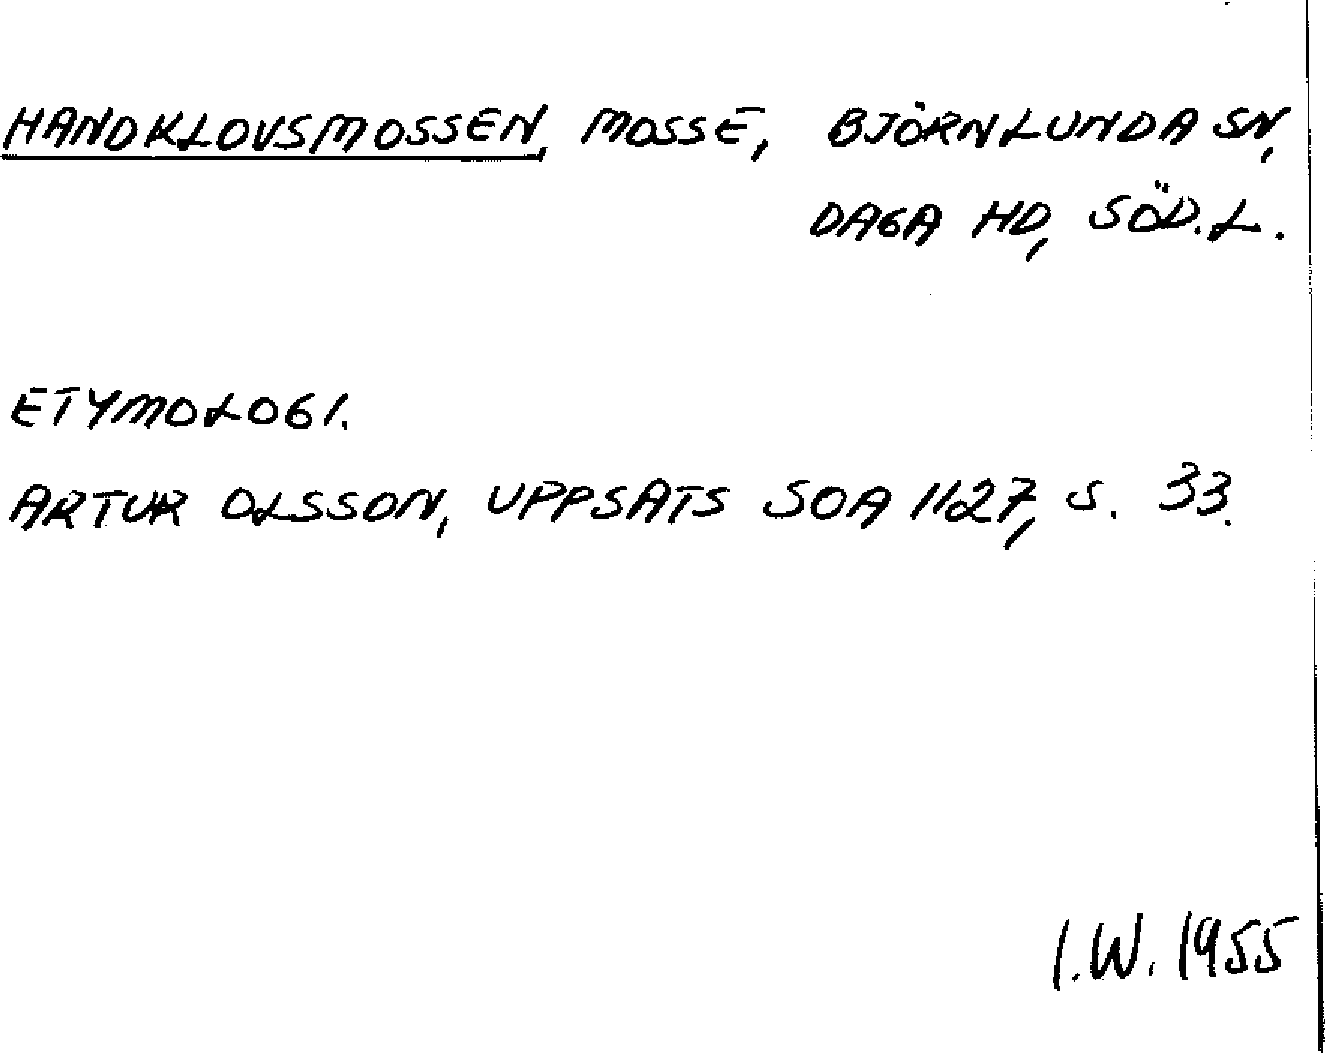 HANDKLOVSMOSSEN, MOSSE, BJÖRNLUNDA SN,
DAGA HD, SÖD.L.
ETYMOLOGI.
ARTUR OLSSON, UPPSATS SOA 1127, S. 33.
I.W. 1955